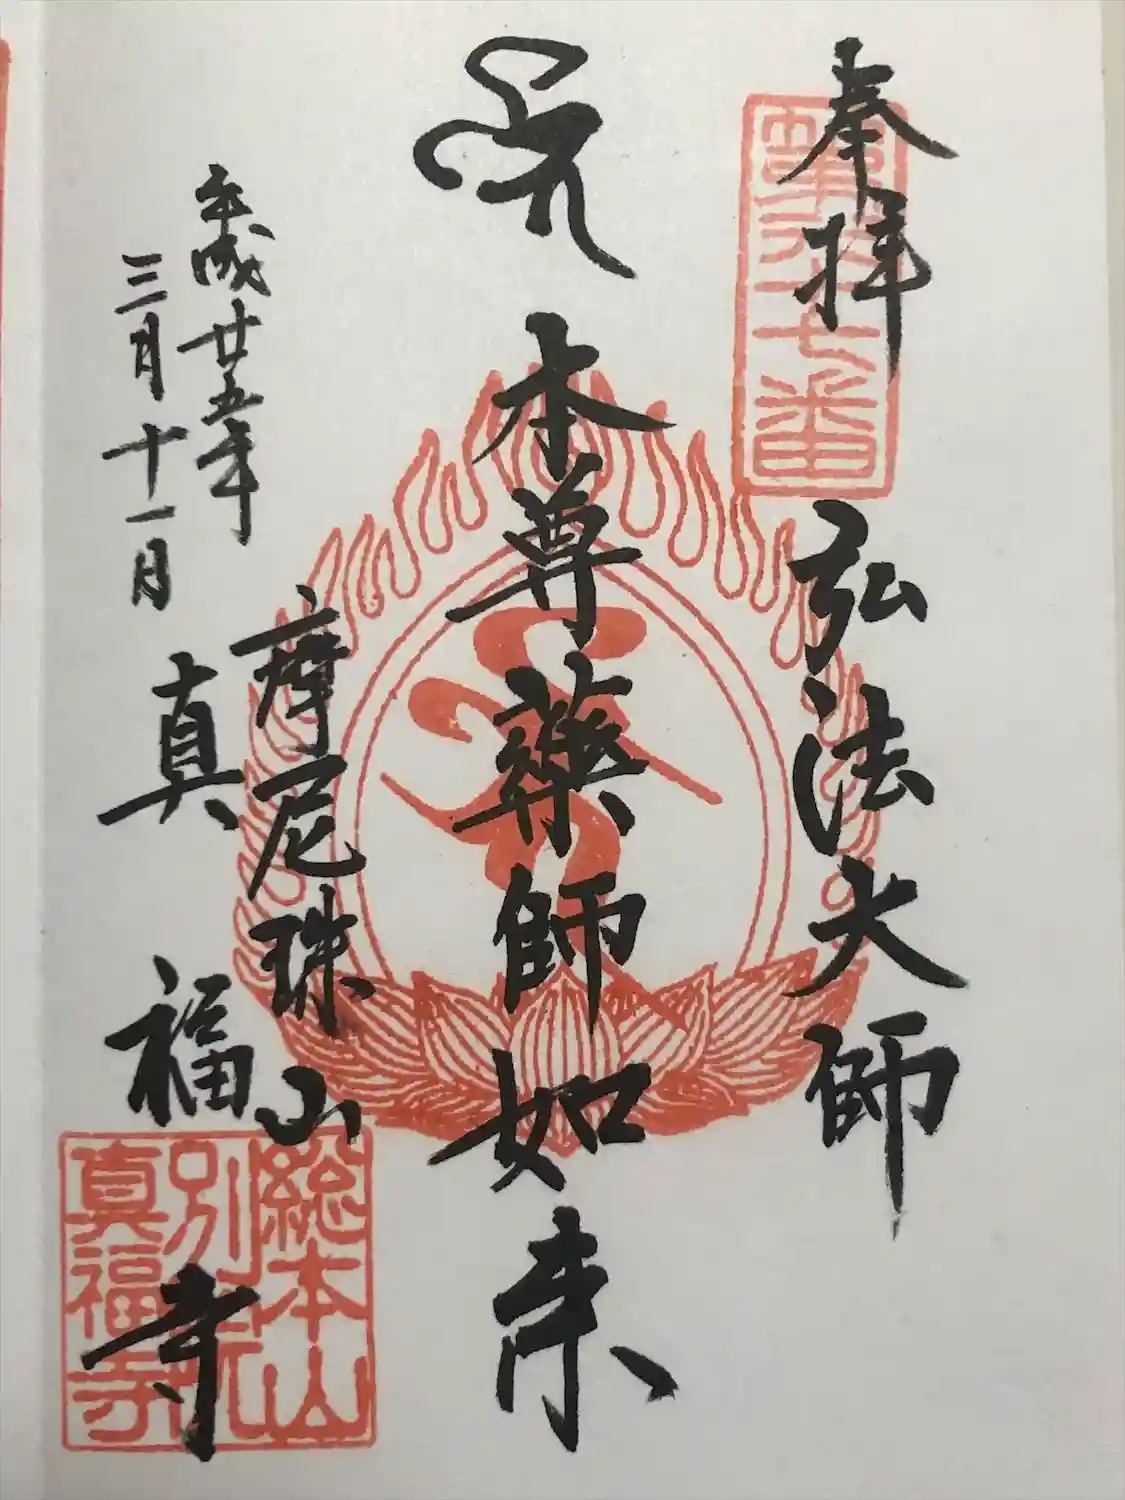 奉拝
第六十七番
弘法大師
本尊藥師如来
摩尼珠山
真福寺
平成廿五年
三月十一日
総本山
別院
真福寺